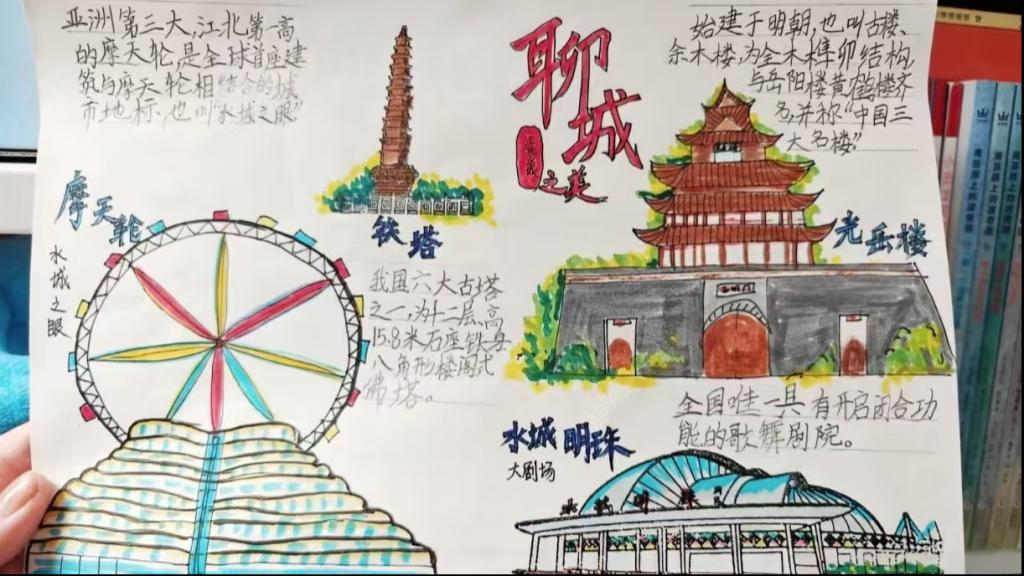 亚洲第三大,江北第一高
的摩天轮,是全球首座建
筑与摩天轮相结合的城
市地标,也叫“水城之眼”
摩天轮
水城之眼
铁塔
我国六大古塔
之一,为十二层,高
15.8米石座铁身
八角形楼阁式
佛塔。
聊城
之美
始建于明朝,也叫古楼、
余木楼,为全木榫卯结构,
与岳阳楼黄鹤楼齐
名,并称“中国三
大名楼”
光岳楼
水城明珠
大剧场
全国唯一具有开启闭合功
能的歌舞剧院。